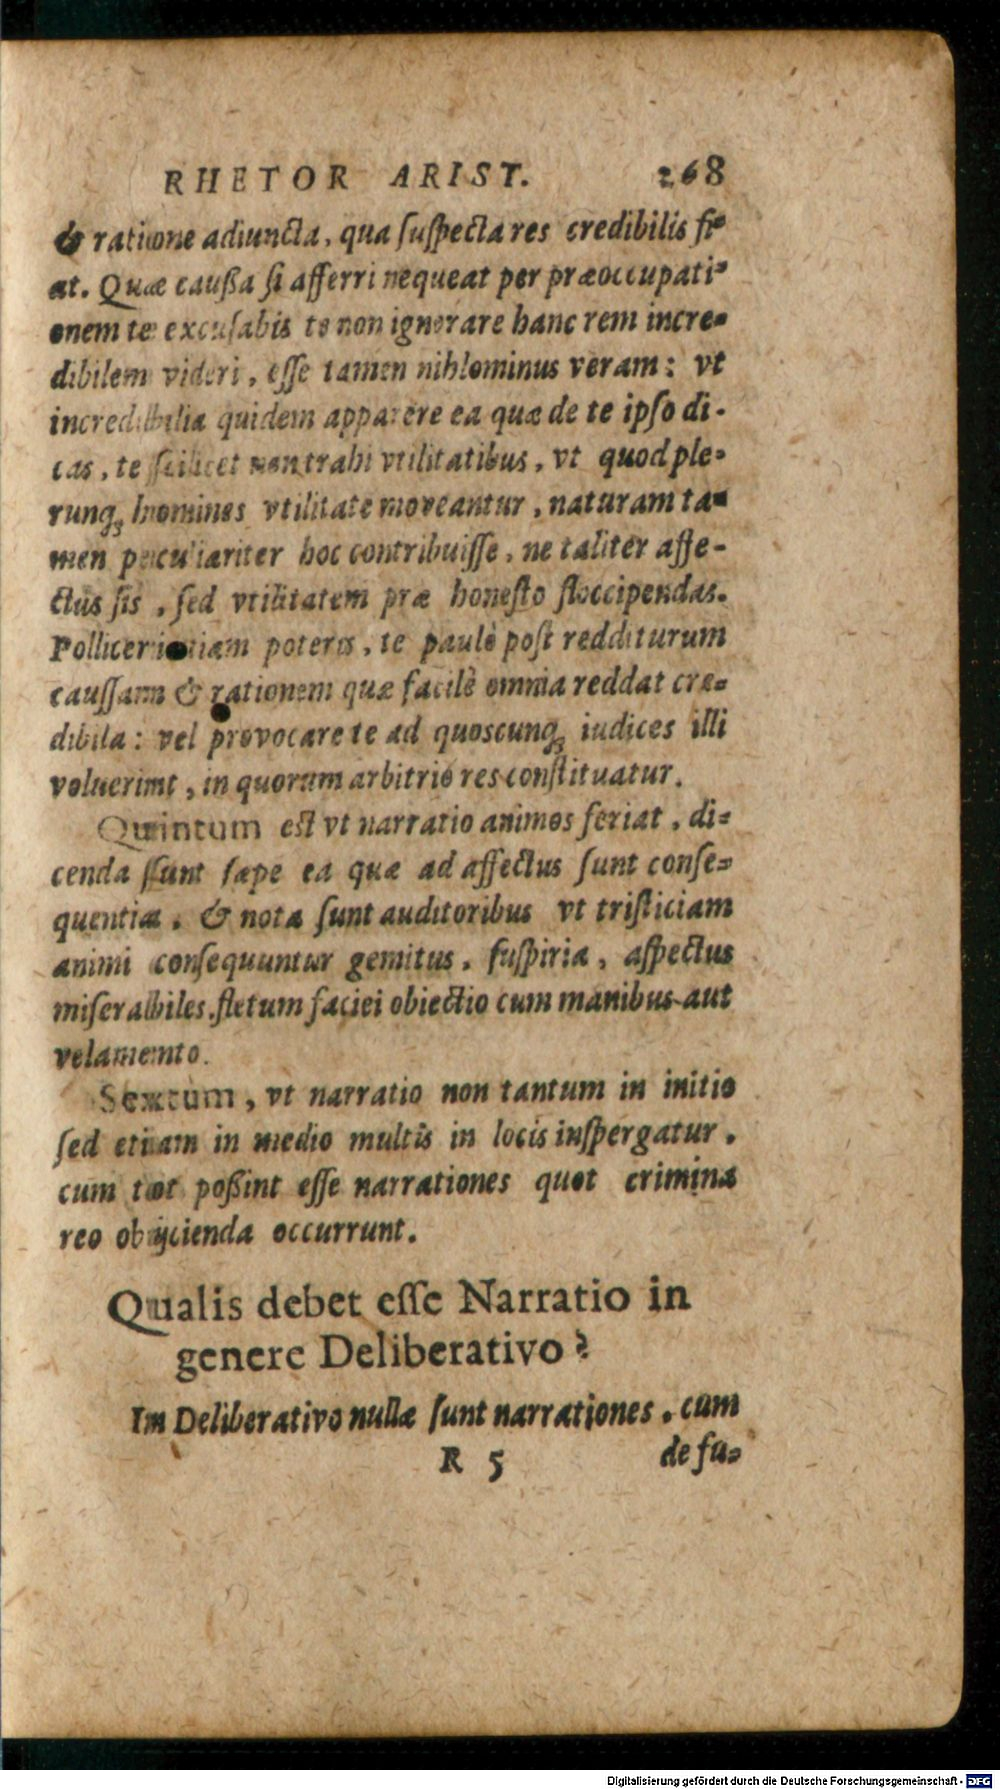 RHETOR ARIST. 268
& ratione adiuncta, qua suspecta res credibilis fi-
at. Quæ caußa si afferri nequeat per præoccupati-
onem te excusabis te non ignorare hanc rem incre-
dibilem videri, esse tamen nihlominus veram: vt
incredibilia quidem apparere ea quæ de te ipso di-
cas, te scilicet non trahi vtilitatibus, vt quod ple-
runq; homines vtilitate moveantur, naturam ta-
men peculiariter hoc contribuisse, ne taliter affe-
ctus sis, sed vtilitatem præ honesto floccipendas.
Polliceri etiam poteris, te paulò post redditurum
caussam & rationem quæ facilè omnia reddat cre-
dibila: vel provocare te ad quoscunq; iudices illi
voluerint, in quorum arbitrio res constituatur.
Quintum est vt narratio animos feriat, di-
cenda sunt sæpe ea quæ ad affectus sunt conse-
quentia, & nota sunt auditoribus vt tristiciam
animi consequuntur gemitus, suspiria, aspectus
miserabiles, fletum faciei obiectio cum manibus aut
velamento.
Sextum, vt narratio non tantum in initio
sed etiam in medio multis in locis inspergatur,
cum tot poßint esse narrationes quot crimina
reo obijcienda occurrunt.
Qualis debet esse Narratio in
genere Deliberativo?
In Deliberativo nullæ sunt narrationes, cum
R 5 de fu-
Digitalisierung gefördert durch die Deutsche Forschungsgemeinschaft - DFG